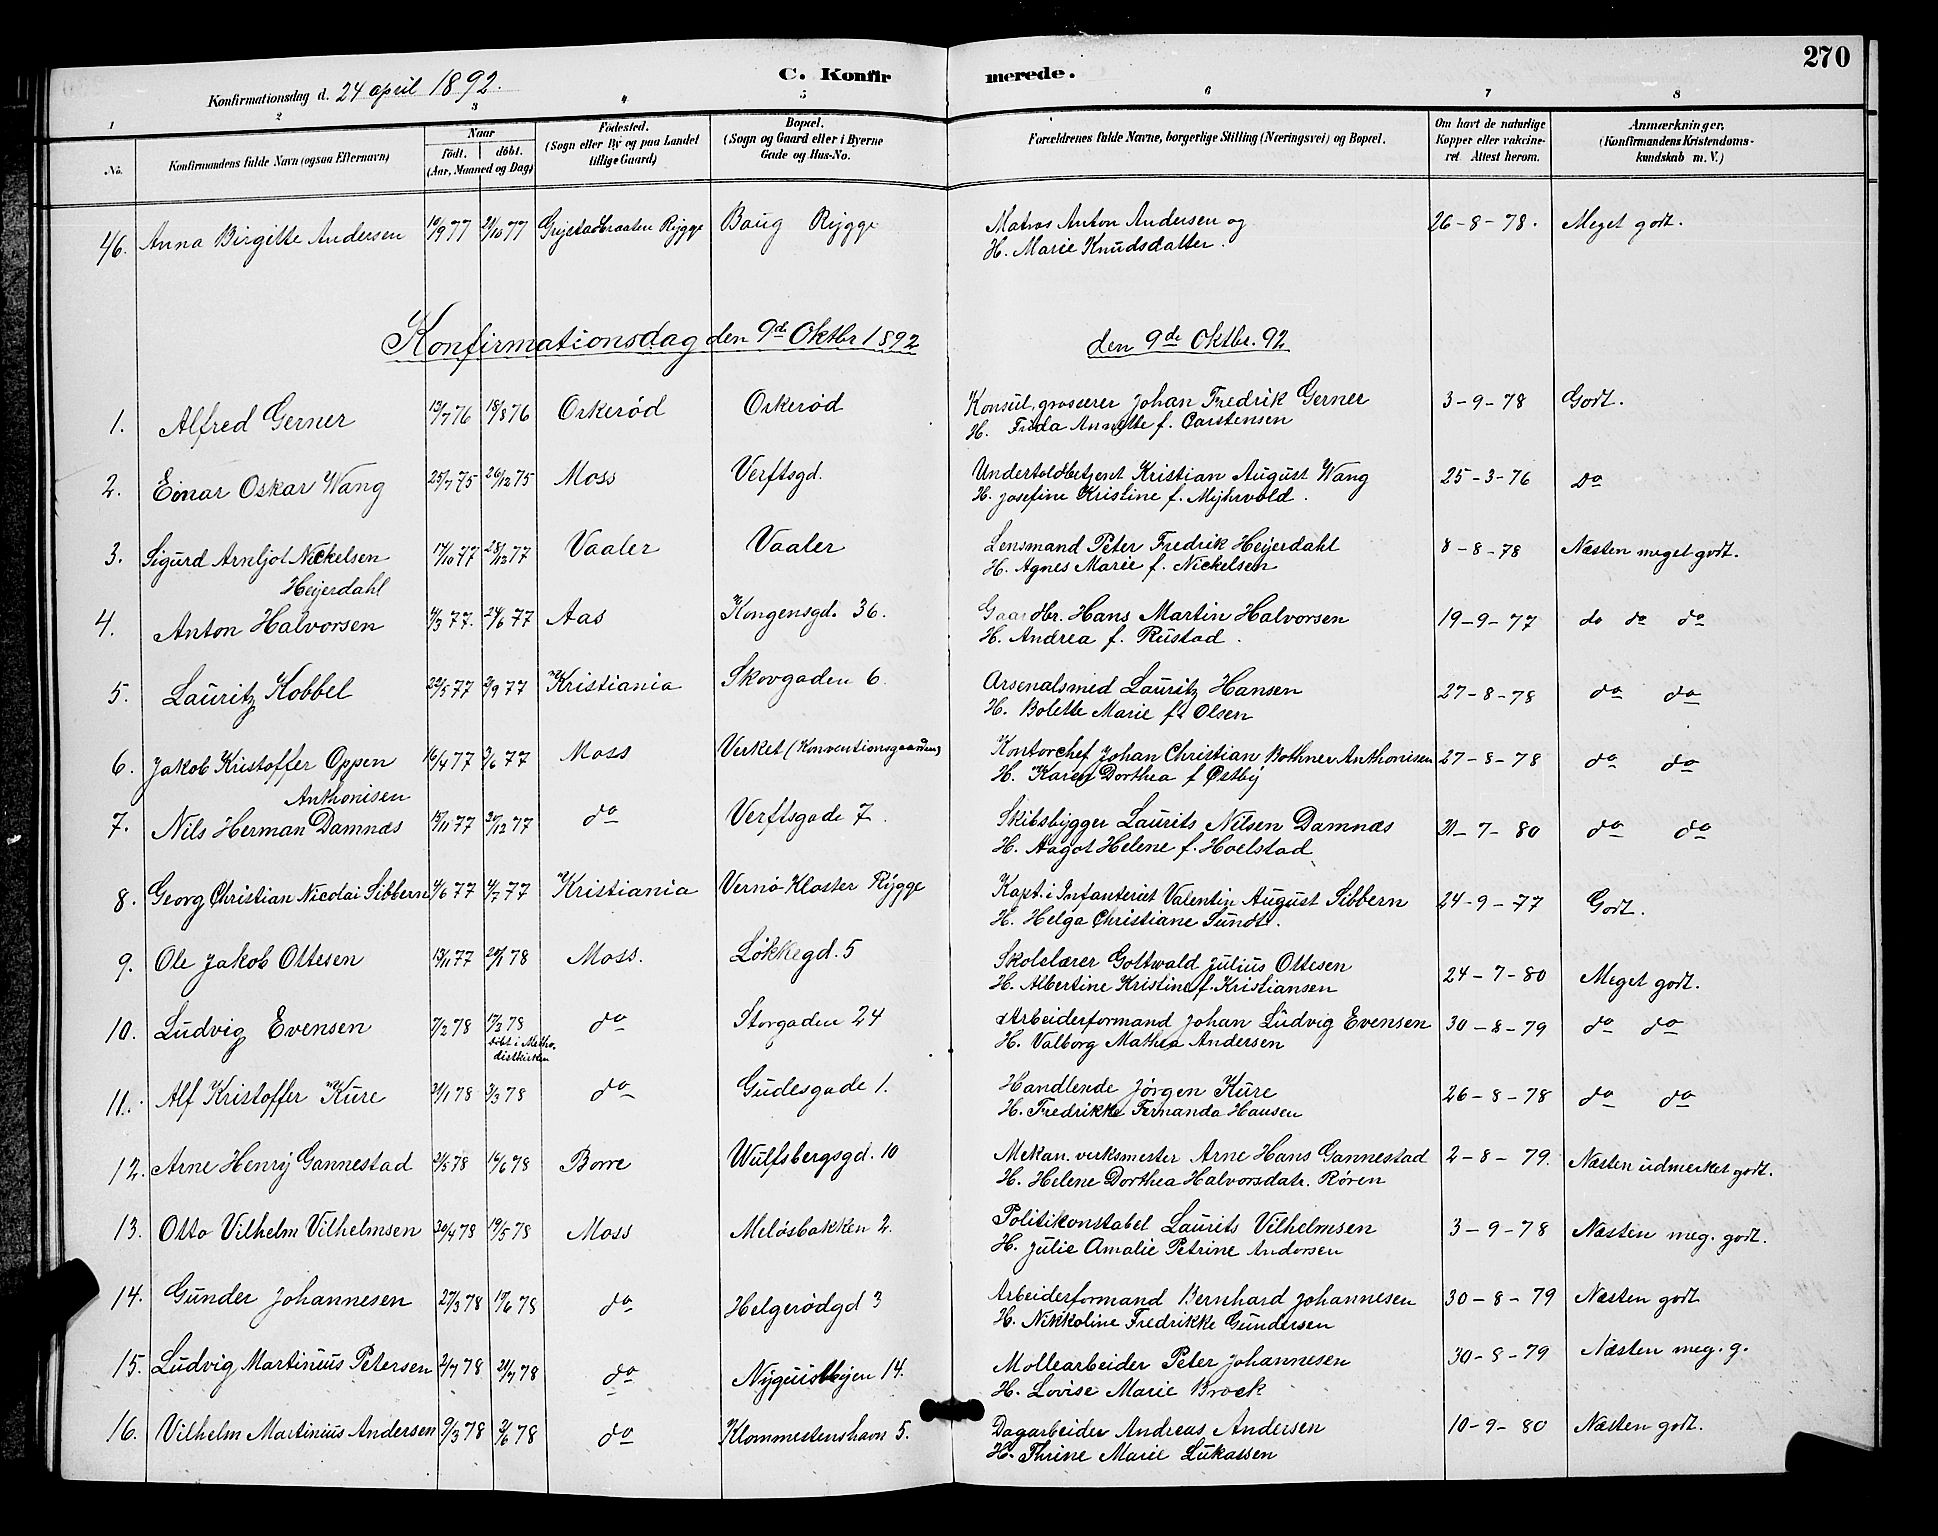 270
C. Konfirmerede.
Konfirmationsdag d. 24 april 1892.
1 2 3 4 5 6 7 8
No. Konfirmandens fulde Navn (ogsaa Efternavn) Naar født. døbt. (Aar, Maaned og Dag) Fødested. (Sogn eller By og paa Landet tillige Gaard) Bopæl. (Sogn og Gaard eller i Byerne Gade og Hus-No. Forældrenes fulde Navne, borgerlige Stilling (Næringsvei) og Bopæl. Om havt de naturlige Kopper eller vakcineret Attest herom. Anmærkninger. (Konfirmandens Kristendomskundskab m. V.)
46. Anna Birgitte Andersen 19/9 77 21/10 77 Rygge Baug Rygge Matros Anton Andersen og 26-8-78. Meget godt.
H. Marie Knudsdatter.
Konfirmationsdag den 9de Oktbr 1892 den 9de Oktbr. 92
1. Alfred Gerner 13/7 76 18/8 76 Orkerød Orkerød Konsul, grosserer Johan Fredrik Gerner 3-9-78 Godt.
H. Frida Annette f. Carstensen
2. Einar Oskar Wang 25/7 75 26/12 75 Moss Verftsgd. Undertoldbetjent Kristian August Wang 25-3-76 Do
H. Josefine Kristine f. Myhrvold.
3. Sigurd Arnljot Nickelsen 17/10 77 28/12 77 Vaaler Vaaler Lensmand Peter Fredrik Heyerdahl 8-8-78 Næsten meget godt.
Heyerdahl H. Agnes Marie f. Nickelsen
4. Anton Halvorsen 4/3 77. 24/6 77 Aas Kongensgd. 36. Gaardbr. Hans Martin Halvorsen 19-9-77 do do do
H. Andrea f. Rustad.
5. Lauritz Kobbel 22/5 77 2/9 77 Kristiania Skovgaden 6. Arsenalsmed Lauritz Hansen 27-8-78 do do
H. Bolette Marie f. Olsen
6. Jakob Kristoffer Oppen 16/4 77 3/6 77 Moss Verket (Konventionsgaarden) Kontorchef Johan Christian Bothner Anthonisen 27-8-78 do do
Anthonisen H. Karen Dorthea f Østby
7. Nils Herman Damnæs 15/11 77 30/12 77 do Verftsgade 7. Skibsbygger Laurits Nilsen Damnæs 31-7-80 do do
H. Aagot Helene f. Hoelstad
8. Georg Christian Nicolai Sibbern 4/6 77 4/7 77 Kristiania Vernø Kloster Rygge Kapt. i Infanteriet Valentin August Sibbern 24-9-77 Godt.
H. Helga Christiane Sundt.
9. Ole Jakob Ottesen 15/11 77 20/1 78 Moss. Løkkegd. 5 Skolelærer Gottwald Julius Ottesen 24-7-80 Meget godt.
H. Albertine Kristine f. Kristiansen
10. Ludvig Evensen 7/2 78 17/3 78 do Storgaden 24 Arbeiderformand Johan Ludvig Evensen 30-8-79 do do
døbt i Methodistkirken H. Valborg Mathea Andersen
11. Alf Kristoffer Kure 24/1 78 3/3 78 do Gudesgade 1. Handlende Jørgen Kure 26-8-78 do do
H. Fredrikke Fernanda Hansen
12. Arne Henry Gannestad 2/5 78 16/6 78 Borre Wulfsbergsgd. 10 Mekan. verksmester Arne Hans Gannestad 2-8-79. Næsten udmerket godt.
H. Helene Dorthea Halvorsdatr. Røren
13. Otto Vilhelm Vilhelmsen 30/4 78 19/5 78 Moss Meløsbakken 2. Politikonstabel Laurits Vilhelmsen 3-9-78 Næsten meg. godt.
H. Julie Amalie Petrine Andersen
14. Gunder Johannesen 27/3 78 17/6 78 do Helgerødgd 3 Arbeiderformand Bernhard Johannesen 30-8-79 Næsten godt
H. Nikkoline Fredrikke Gundersen
15. Ludvig Martinius Petersen 2/7 78 21/7 78 do Nyquistbyen 14. Møllearbeider Peter Johannesen 30-8-79 Næsten meg. g.
H. Lovise Marie Brock
16. Vilhelm Martinius Andersen 9/3 78 9/6 78 do Klommestenshavn 5. Dagarbeider Andreas Andersen 10-9-80 Næsten godt.
H. Thrine Marie Lukassen